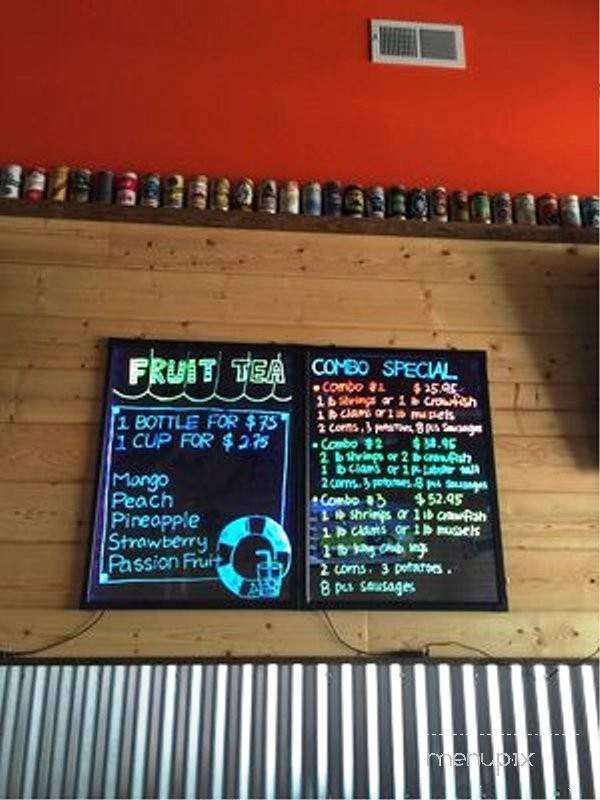 FRUIT TEA
1 BOTTLE FOR $75
1 CUP FOR $2.75
Mango
Peach
Pineapple
Strawberry
Passion Fruit
COMBO SPECIAL
Combo #1 $25.95
1 lb shrimps or 1 lb crawfish
1 lb clams or 1 lb mussels
2 corns, 3 potatoes, 8 pcs sausages
Combo #2 $38.95
2 lb shrimps or 2 lb crawfish
1 lb clams or 1 pc Lobster tail
2 corns, 3 potatoes, 8 pcs sausages
Combo #3 $52.95
1 lb shrimps or 1 lb crawfish
1 lb clams or 1 lb mussels
1 lb king crab legs
2 corns, 3 potatoes,
8 pcs sausages
menupix